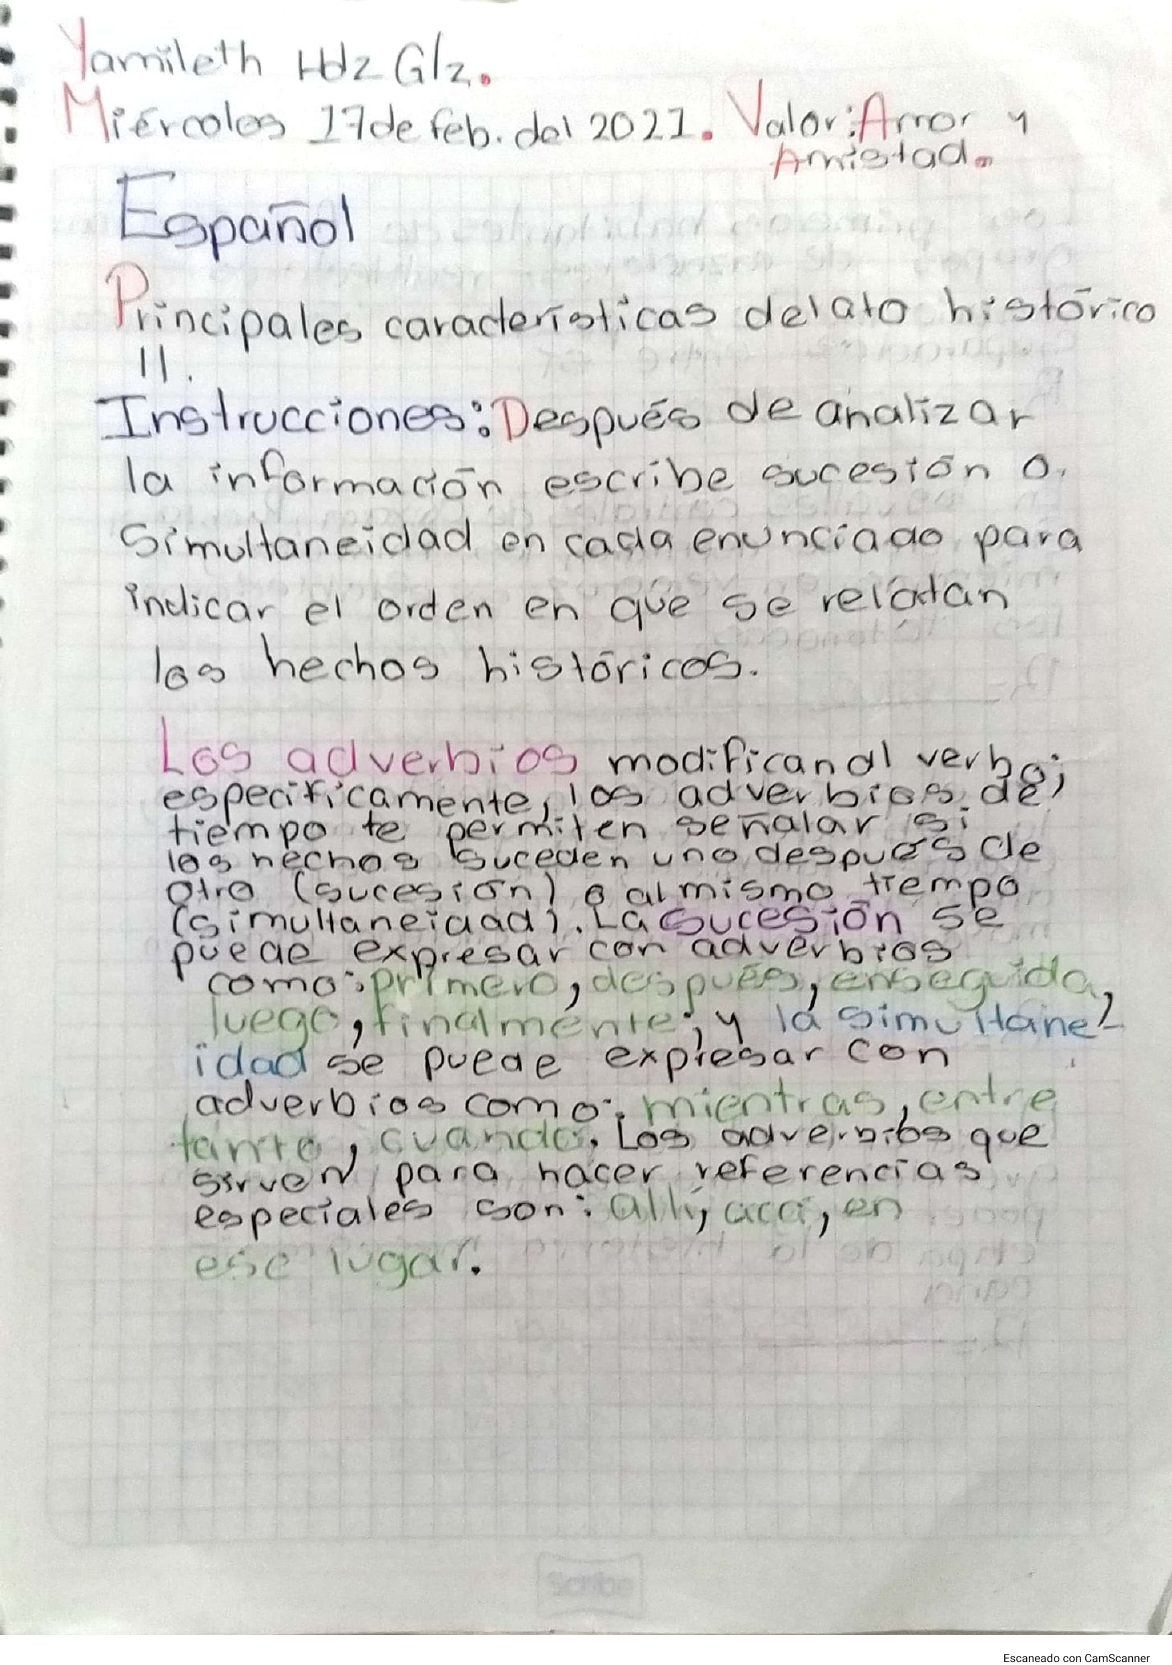 Yamileth Hdz Glz.
Miércoles 17 de feb. del 2021. Valor: Amor y
Amistad.
Español
Principales características del ato histórico
II.
Instrucciones: Después de analizar
la información escribe sucesión o.
Simultaneidad en cada enunciado para
indicar el orden en que se relatan
los hechos históricos.
Los adverbios modifican al verbo;
específicamente, los adverbios de
tiempo te permiten señalar si
los hechos suceden uno después de
otro (sucesión) o al mismo tiempo
(simultaneidad). La sucesión se
puede expresar con adverbios
como: primero, después, enseguida,
luego, finalmente; y la simultane-
idad se puede expresar con
adverbios como: mientras, entre
tanto, cuando. Los adverbios que
sirven para hacer referencias
especiales son: allí, acá, en
ese lugar.
Scribe
Escaneado con CamScanner